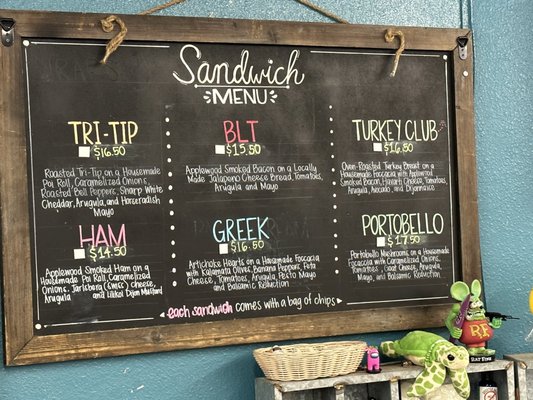 Sandwich
MENU
TRI-TIP
$16.50
Roasted Tri-Tip on a Housemade
Poi Roll, Caramelized Onions,
Roasted Bell Peppers, Sharp White
Cheddar, Arugula, and Horseradish
Mayo
BLT
$15.50
Applewood Smoked Bacon on a Locally
Made Jalapeno Cheese Bread, Tomatoes,
Arugula and Mayo
TURKEY CLUB
$16.80
Oven-Roasted Turkey Breast on a
Housemade Foccacia with Applewood
Smoked Bacon, Havarti Cheese, Tomatoes,
Arugula, Avocado, and Dijonnaise
HAM
$14.50
Applewood Smoked Ham on a
Housemade Poi Roll, Caramelized
Onions, Jarlsberg (Swiss) Cheese,
Arugula and Lilikoi Dijon Mustard
GREEK
$16.50
Artichoke Hearts on a Housemade Foccacia
with Kalamata Olives, Banana Peppers, Feta
Cheese, Tomatoes, Arugula, Pesto Mayo
and Balsamic Reduction
PORTOBELLO
$17.50
Portobello Mushrooms on a Housemade
Foccacia with Caramelized Onions,
Tomatoes, Goat Cheese, Arugula,
Mayo, and Balsamic Reduction
each sandwich comes with a bag of chips
RF
RAT FINK